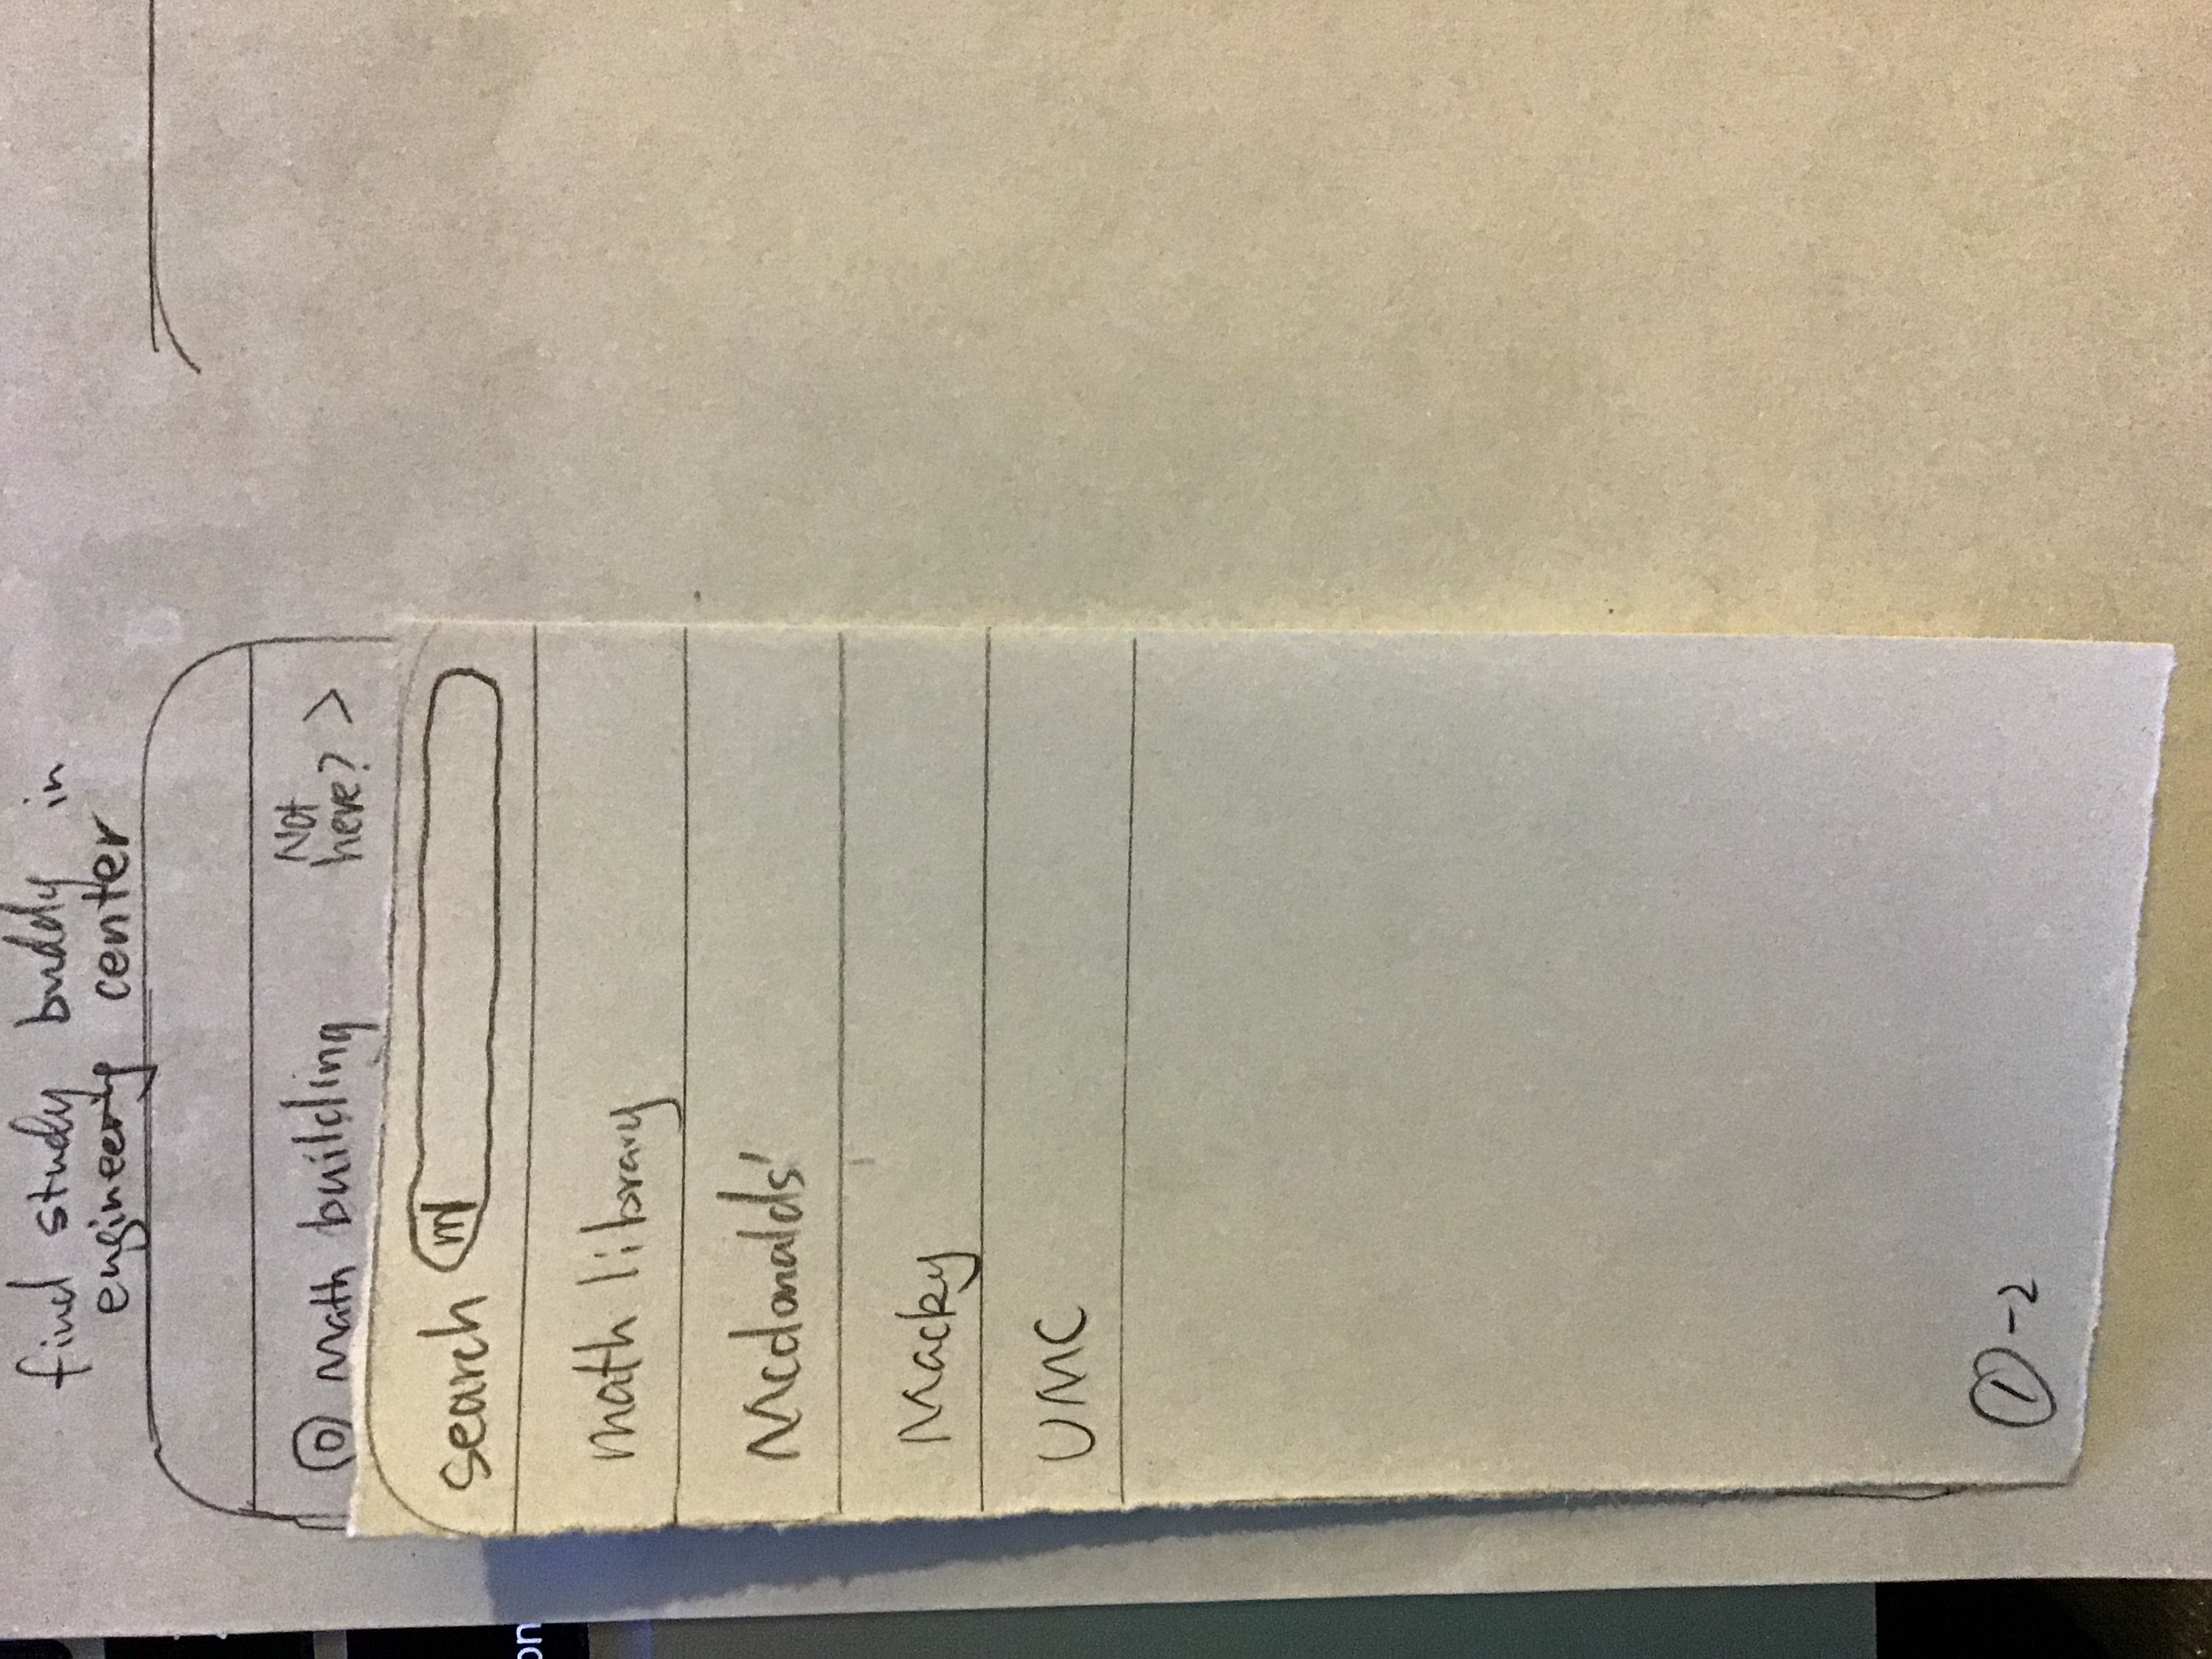 find study buddy in
engineering center
Math building
Not
here? >
search m
math library
Mcdonalds'
Macky
UMC
①-2
on